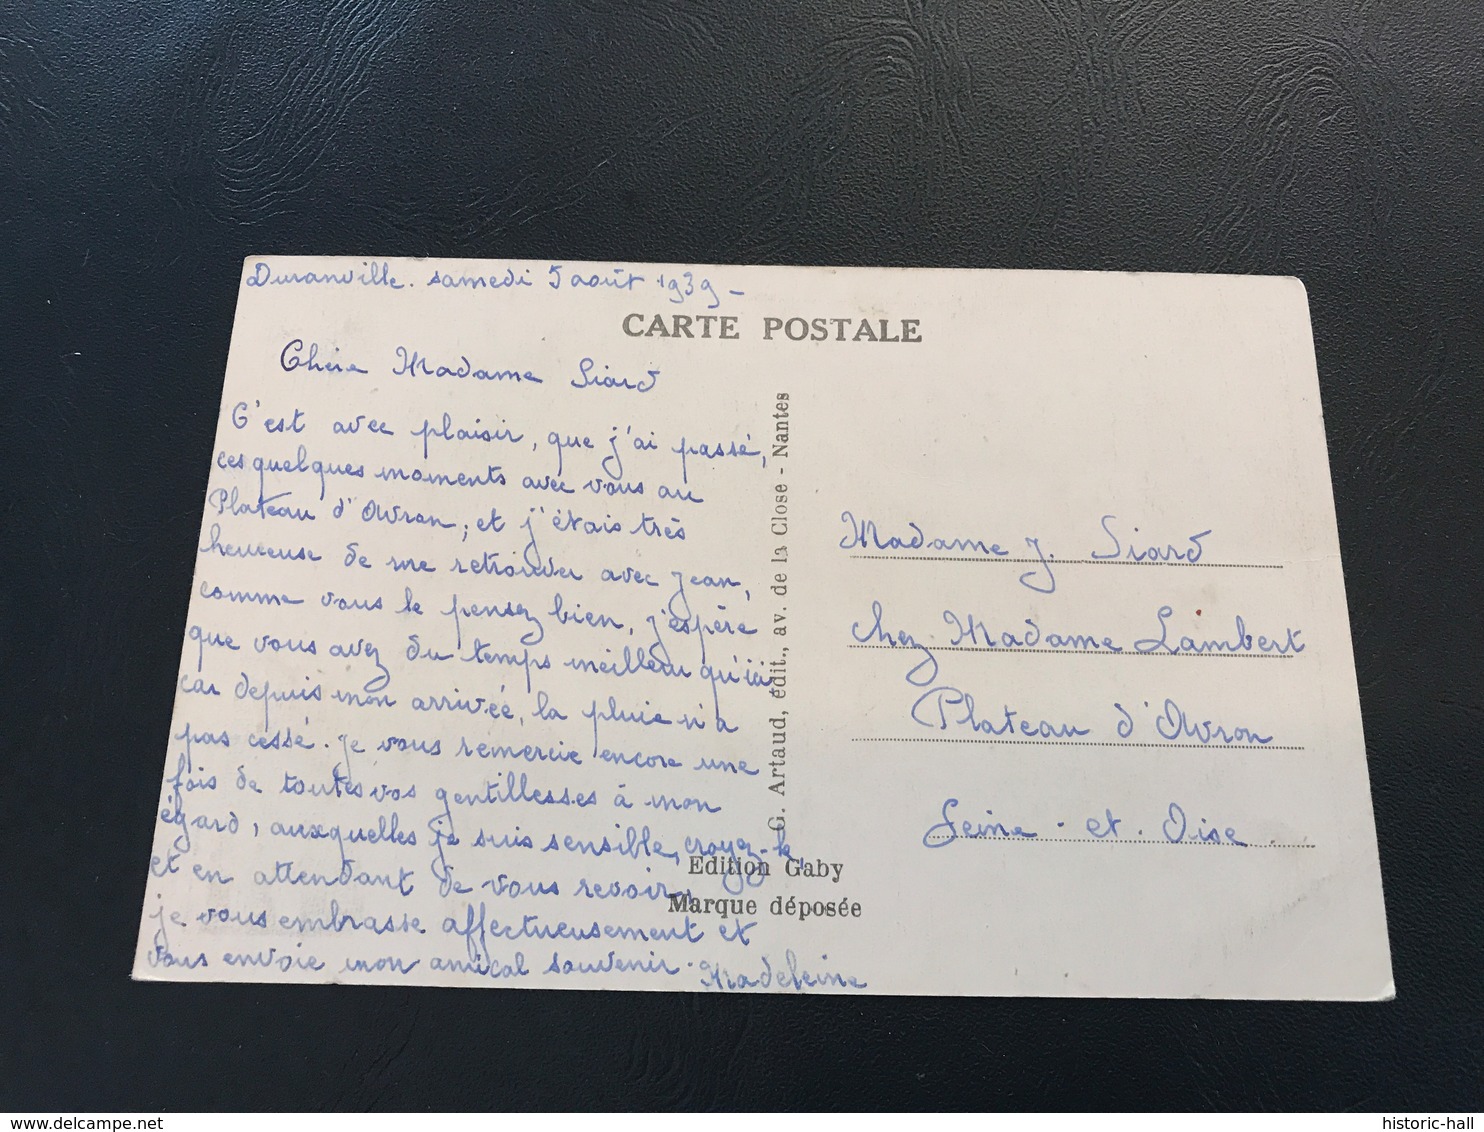 Duranville. samedi 5 août 1939 -
CARTE POSTALE
Chère Madame Siard
C'est avec plaisir, que j'ai passé,
ces quelques moments avec vous au
Plateau d'Avron, et j'étais très
heureuse de me retrouver avec Jean,
comme vous le pensez bien, j'espère
que vous avez du temps meilleur qu'ici
car depuis mon arrivée, la pluie n'a
pas cessé. Je vous remercie encore une
fois de toutes vos gentillesses à mon
égard, auxquelles je suis sensible, croyez-le,
et en attendant de vous revoir,
je vous embrasse affectueusement et
vous envoie mon amical souvenir.
Madeleine
G. Artaud, édit., av. de la Close - Nantes
Edition Gaby
Marque déposée
Madame J. Siard
chez Madame Lambert
Plateau d'Avron
Seine - et - Oise
historic-hall
delcampe.net